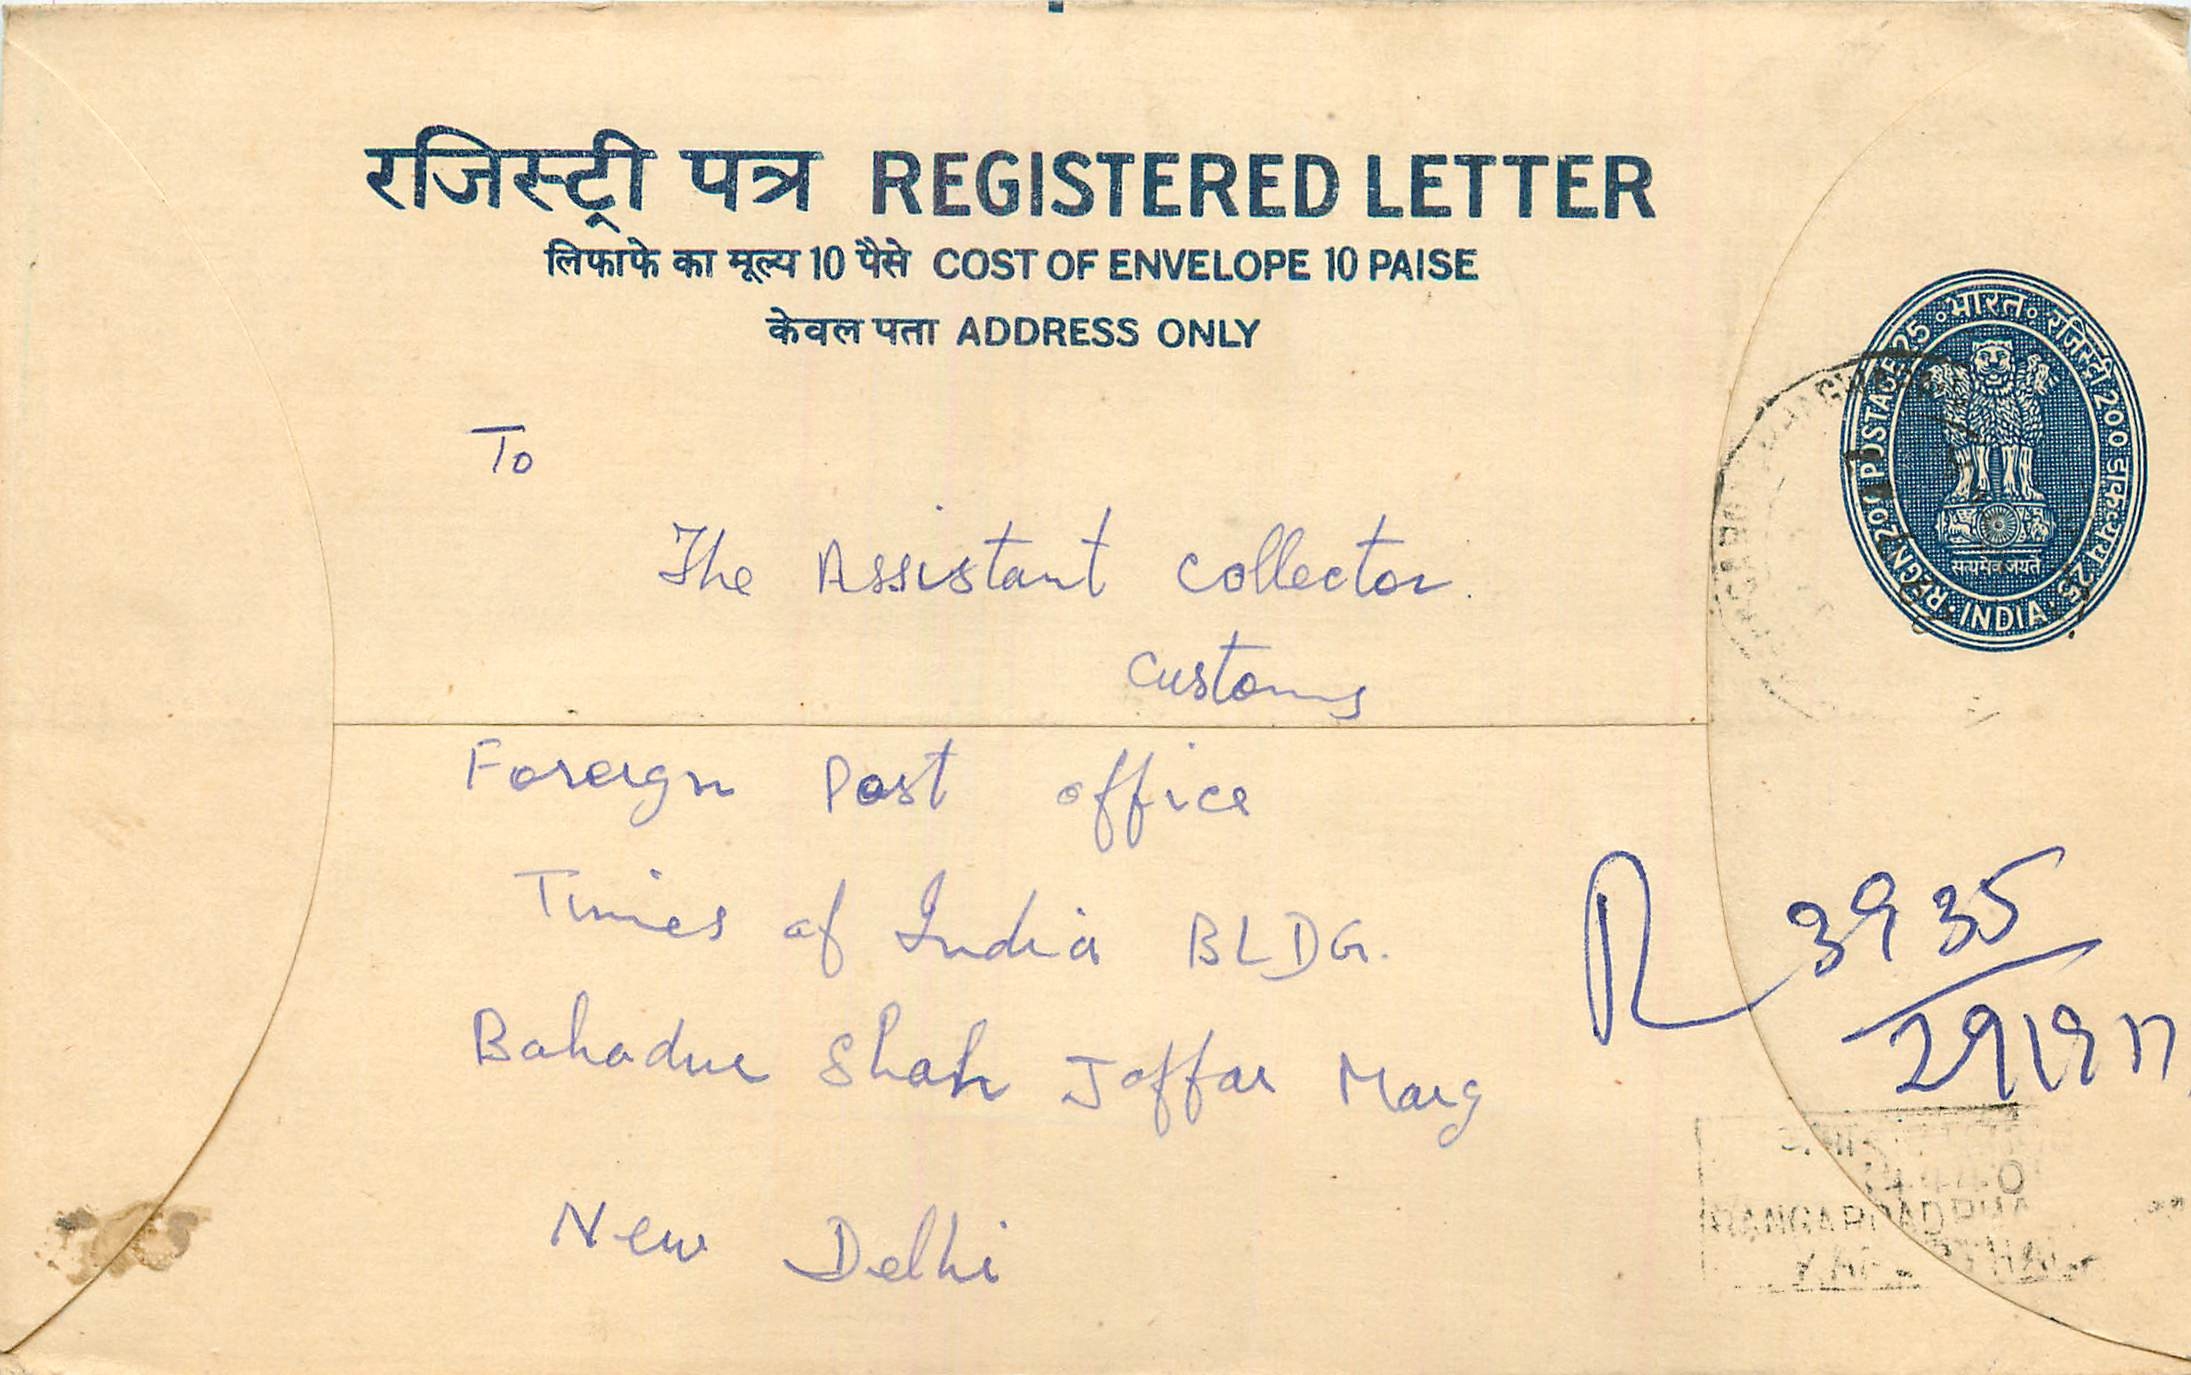 रजिस्ट्री पत्र REGISTERED LETTER
लिफाफे का मूल्य 10 पैसे COST OF ENVELOPE 10 PAISE
केवल पता ADDRESS ONLY
भारत रजिस्ट्री 200 डाक-व्यय 25
REGN 200 POSTAGE 25
सत्यमेव जयते
INDIA
To
The Assistant Collector.
Customs
Foreign Post office
Times of India BLDG.
Bahadur Shah Jaffar Marg
New Delhi
R 3935